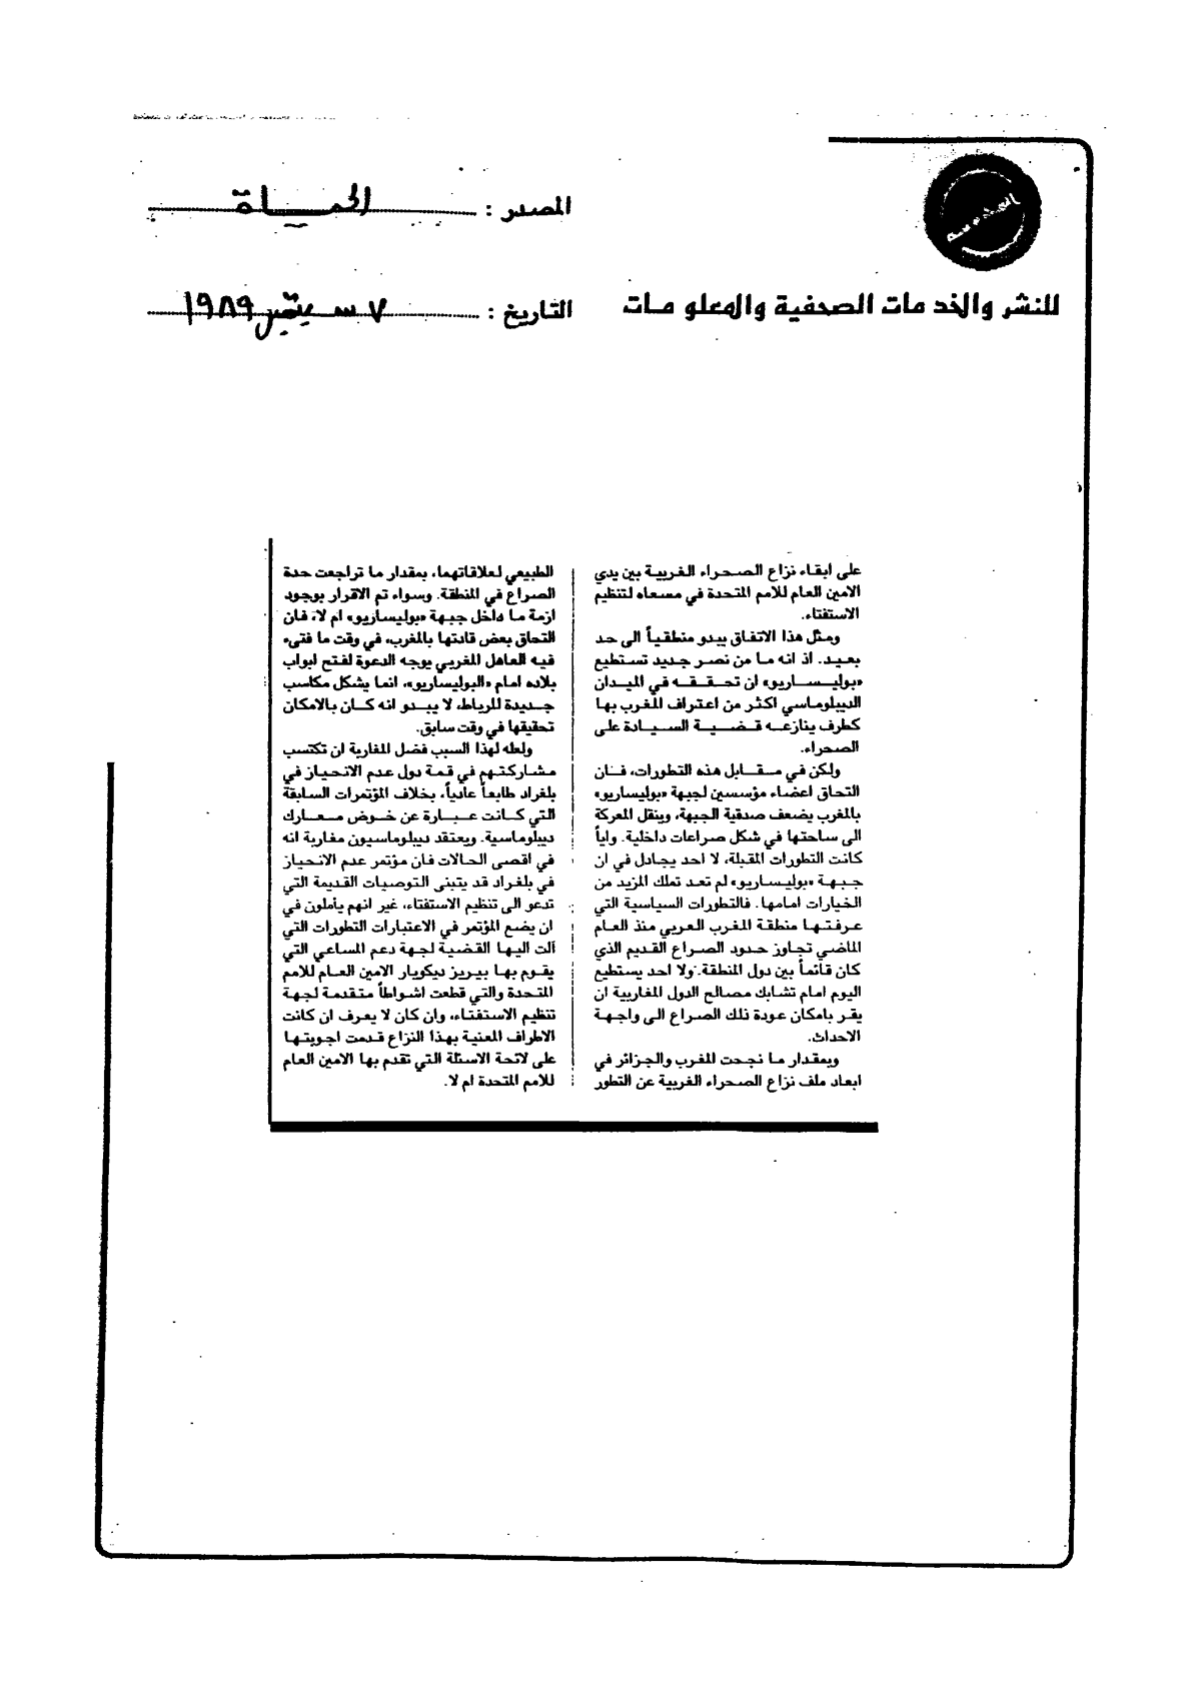 المصدر : الحياة
للنشر والخدمات الصحفية والمعلومات
التاريخ : ٧ سبتمبر ١٩٨٩
على ابقاء نزاع الصحراء الغربية بين يدي
الامين العام للامم المتحدة في مسعاه لتنظيم
الاستفتاء.
ومثل هذا الاتفاق يبدو منطقياً الى حد
بعيد. اذ انه ما من نصر جديد تستطيع
«بوليساريو» ان تحققه في الميدان
الديبلوماسي اكثر من اعتراف المغرب بها
كطرف ينازعه قضية السيادة على
الصحراء.
ولكن في مقابل هذه التطورات، فان
التحاق اعضاء مؤسسين لجبهة «بوليساريو»
بالمغرب يضعف صدقية الجبهة، وينقل المعركة
الى ساحتها في شكل صراعات داخلية. واياً
كانت التطورات المقبلة، لا احد يجادل في ان
جبهة «بوليساريو» لم تعد تملك المزيد من
الخيارات امامها. فالتطورات السياسية التي
عرفتها منطقة المغرب العربي منذ العام
الماضي تجاوز حدود الصراع القديم الذي
كان قائماً بين دول المنطقة. ولا احد يستطيع
اليوم امام تشابك مصالح الدول المغاربية ان
يقر بامكان عودة ذلك الصراع الى واجهة
الاحداث.
وبمقدار ما نجحت المغرب والجزائر في
ابعاد ملف نزاع الصحراء الغربية عن التطور
الطبيعي لعلاقاتهما، بمقدار ما تراجعت حدة
الصراع في المنطقة. وسواء تم الاقرار بوجود
ازمة ما داخل جبهة «بوليساريو» ام لا، فان
التحاق بعض قادتها بالمغرب، في وقت ما فتىء
فيه العاهل المغربي يوجه الدعوة لفتح ابواب
بلاده امام «البوليساريو»، انما يشكل مكاسب
جديدة للرباط، لا يبدو انه كان بالامكان
تحقيقها في وقت سابق.
ولعله لهذا السبب فضل المغاربة ان تكتسب
مشاركتهم في قمة دول عدم الانحياز في
بلغراد طابعاً عادياً، بخلاف المؤتمرات السابقة
التي كانت عبارة عن خوض معارك
ديبلوماسية. ويعتقد ديبلوماسيون مغاربة انه
في اقصى الحالات فان مؤتمر عدم الانحياز
في بلغراد قد يتبنى التوصيات القديمة التي
تدعو الى تنظيم الاستفتاء، غير انهم يأملون في
ان يضع المؤتمر في الاعتبارات التطورات التي
آلت اليها القضية لجهة دعم المساعي التي
يقوم بها بيريز ديكويار الامين العام للامم
المتحدة والتي قطعت اشواطاً متقدمة لجهة
تنظيم الاستفتاء، وان كان لا يعرف ان كانت
الاطراف المعنية بهذا النزاع قدمت اجوبتها
على لائحة الاسئلة التي تقدم بها الامين العام
للامم المتحدة ام لا.